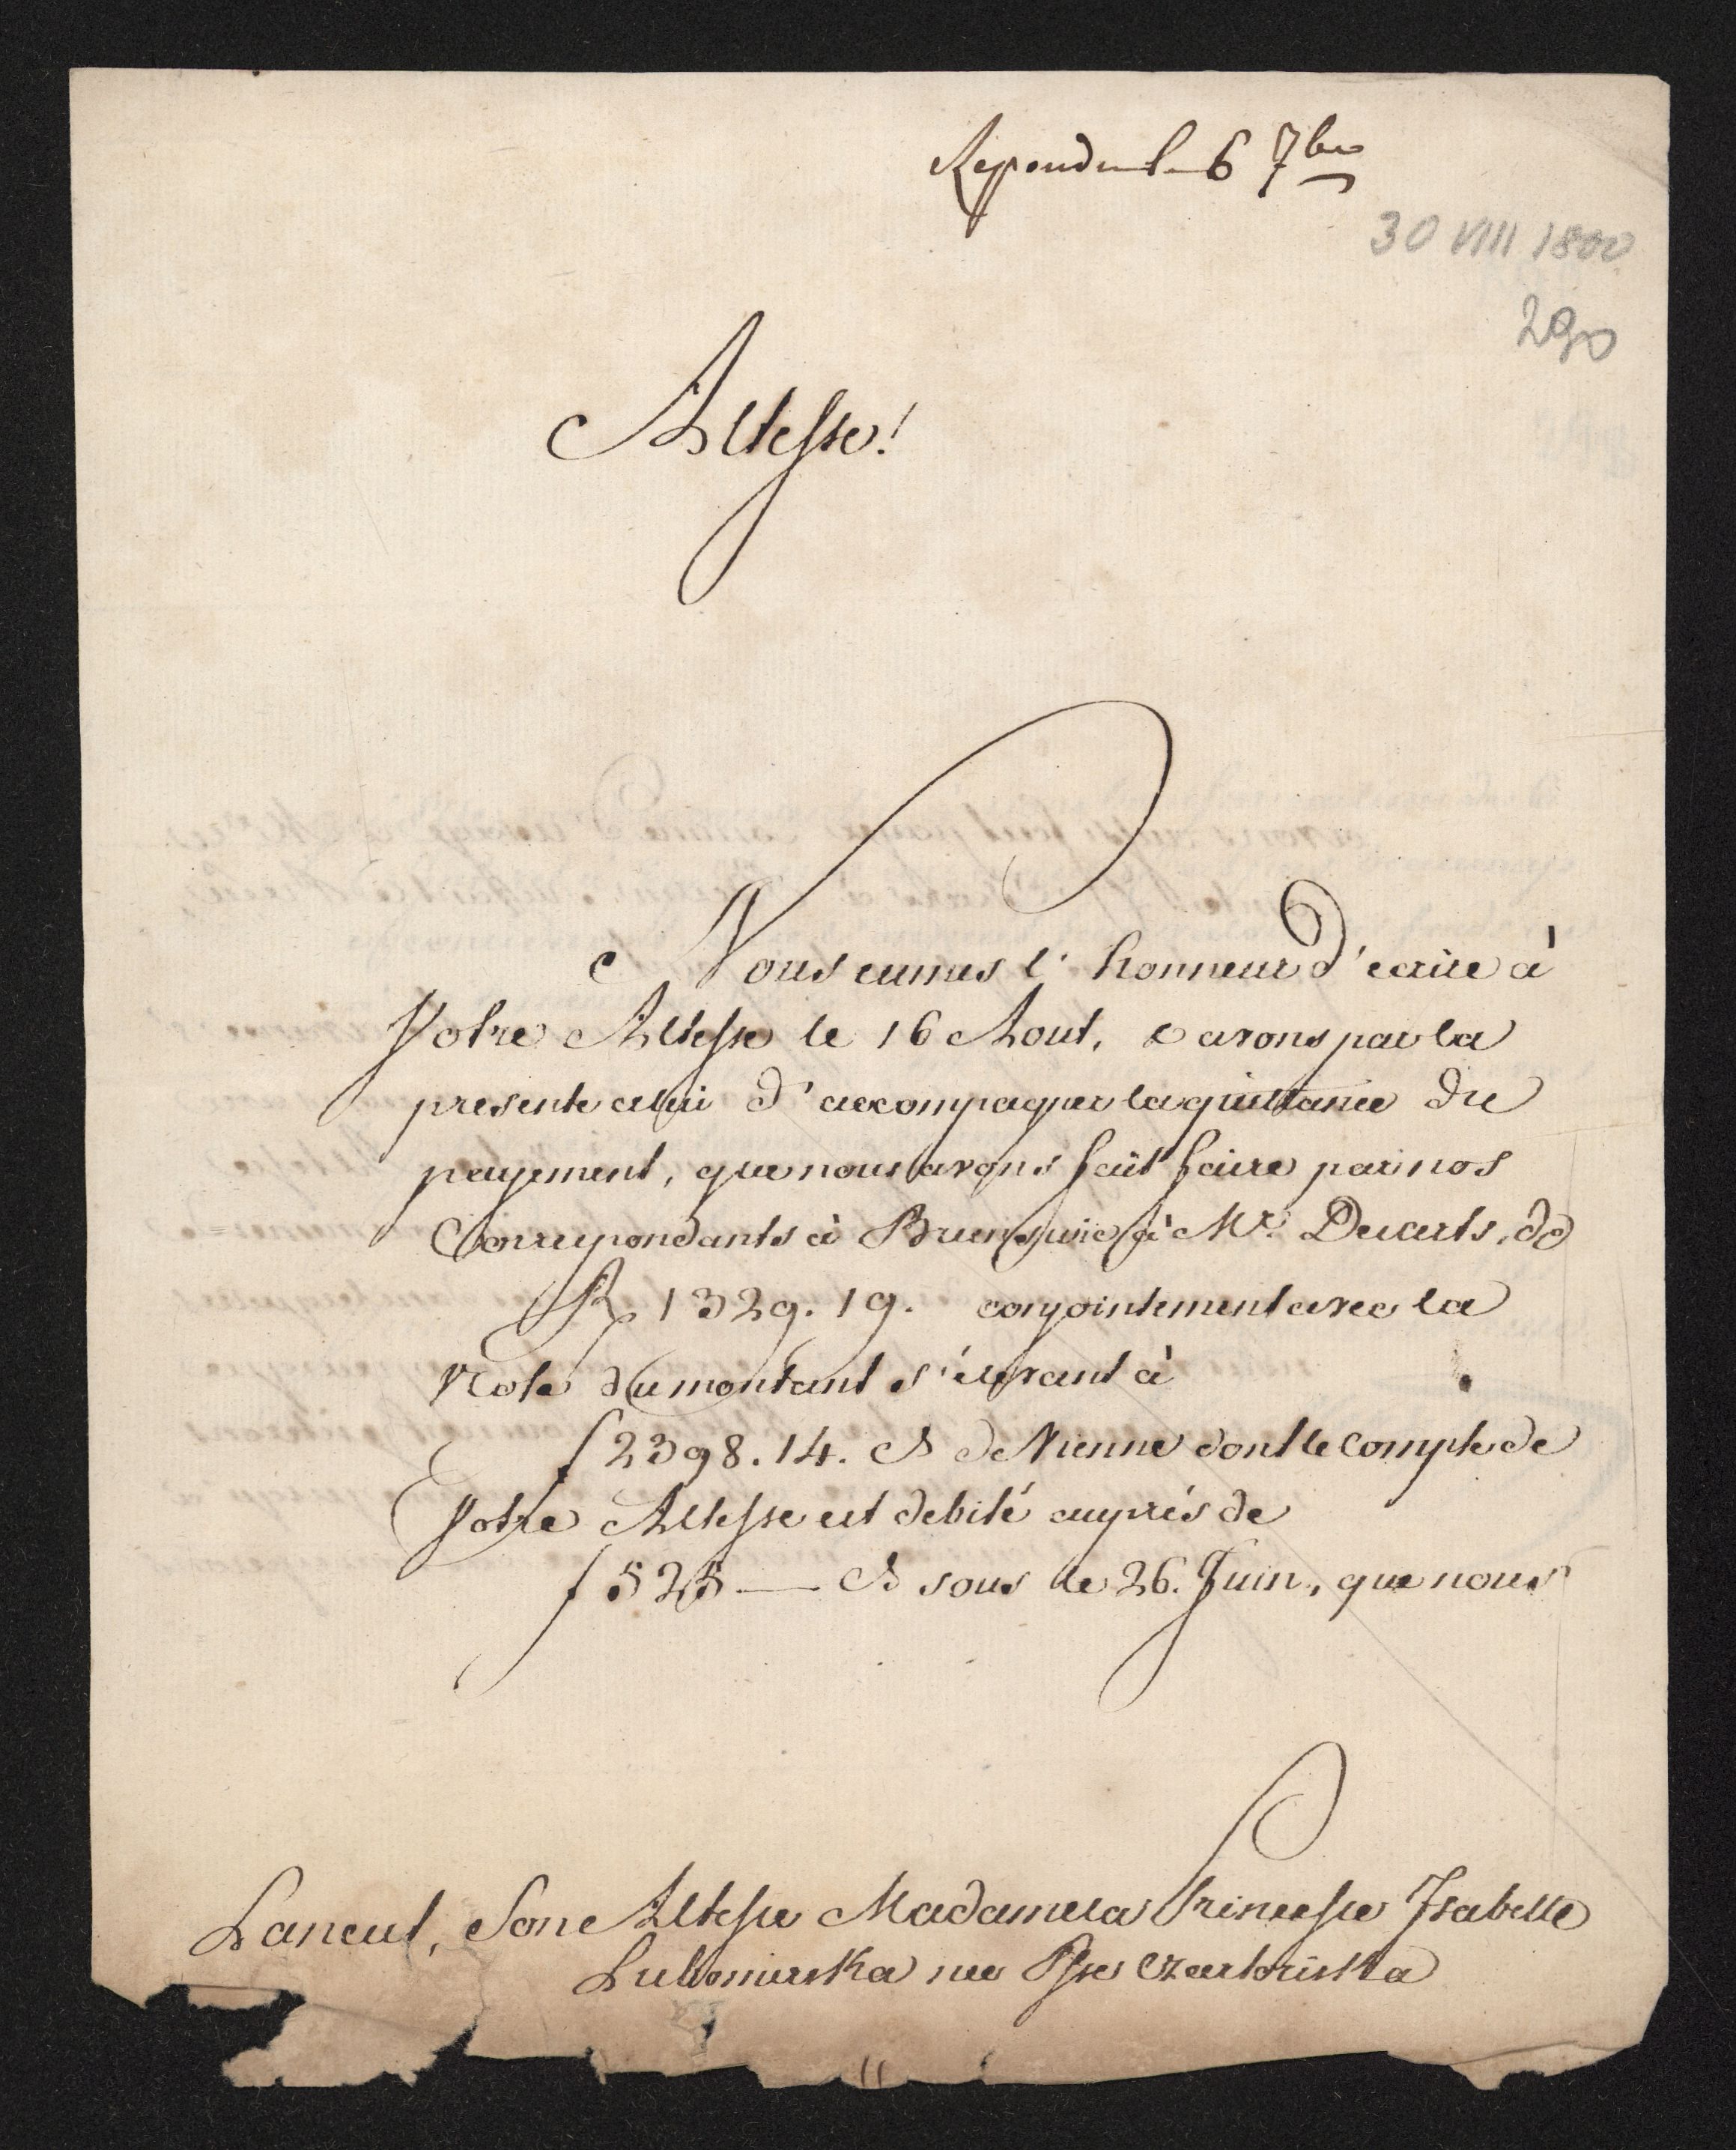 Repondu le 6 7bre
30 VIII 1800
290
Altesse!
Nous eumes l'honneur d'ecrire à
Votre Altesse le 16 Aout, & avons par la
presente celui d'accompagner la quittance du
payement, que nous avons fait faire par nos
Correspondants à Brunsvic à Mr. Decerts, de
R 1329. 19. conjointement avec la
Note du montant s'élevant à
f 2398. 14. C de Vienne dont le compte de
Votre Altesse est debité auprés de
f 525 — C sous le 26. Juin, que nous
Lancut, Son Altesse Madame la Princesse Isabelle
Lubomirska nee Psse Czartoriska